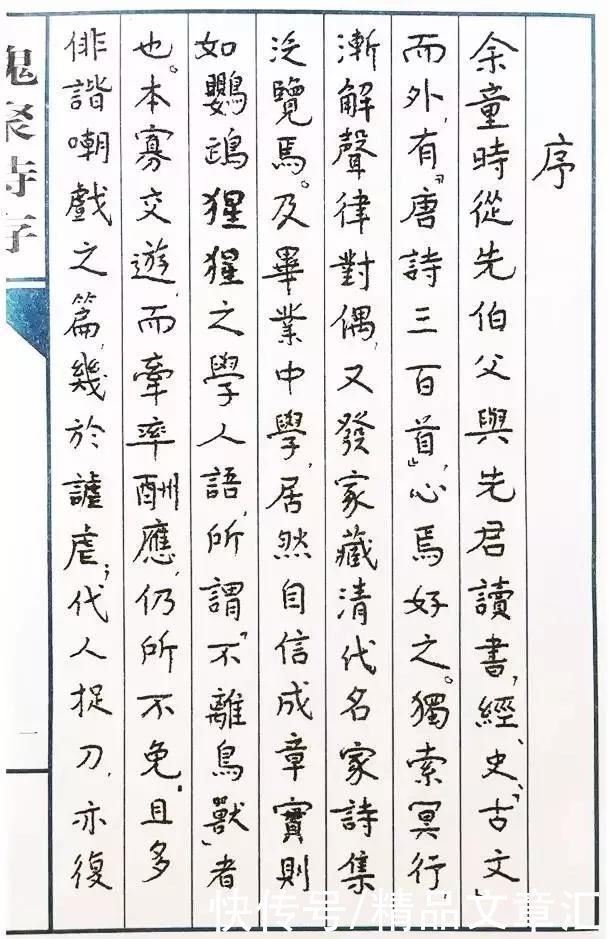 序
余童時從先伯父與先君讀書，經、史、「古文」
而外，有「唐詩三百首」，心焉好之。獨索冥行，
漸解聲律對偶，又發家藏清代名家詩集
泛覽焉。及畢業中學，居然自信成章，實則
如鸚鵡猩猩之學人語，所謂「不離鳥獸」者
也。本寡交遊，而牽率酬應，仍所不免。且多
俳諧嘲戲之篇，幾於謔虐；代人捉刀，亦復
槐聚詩存
一
快传号/精品文章汇